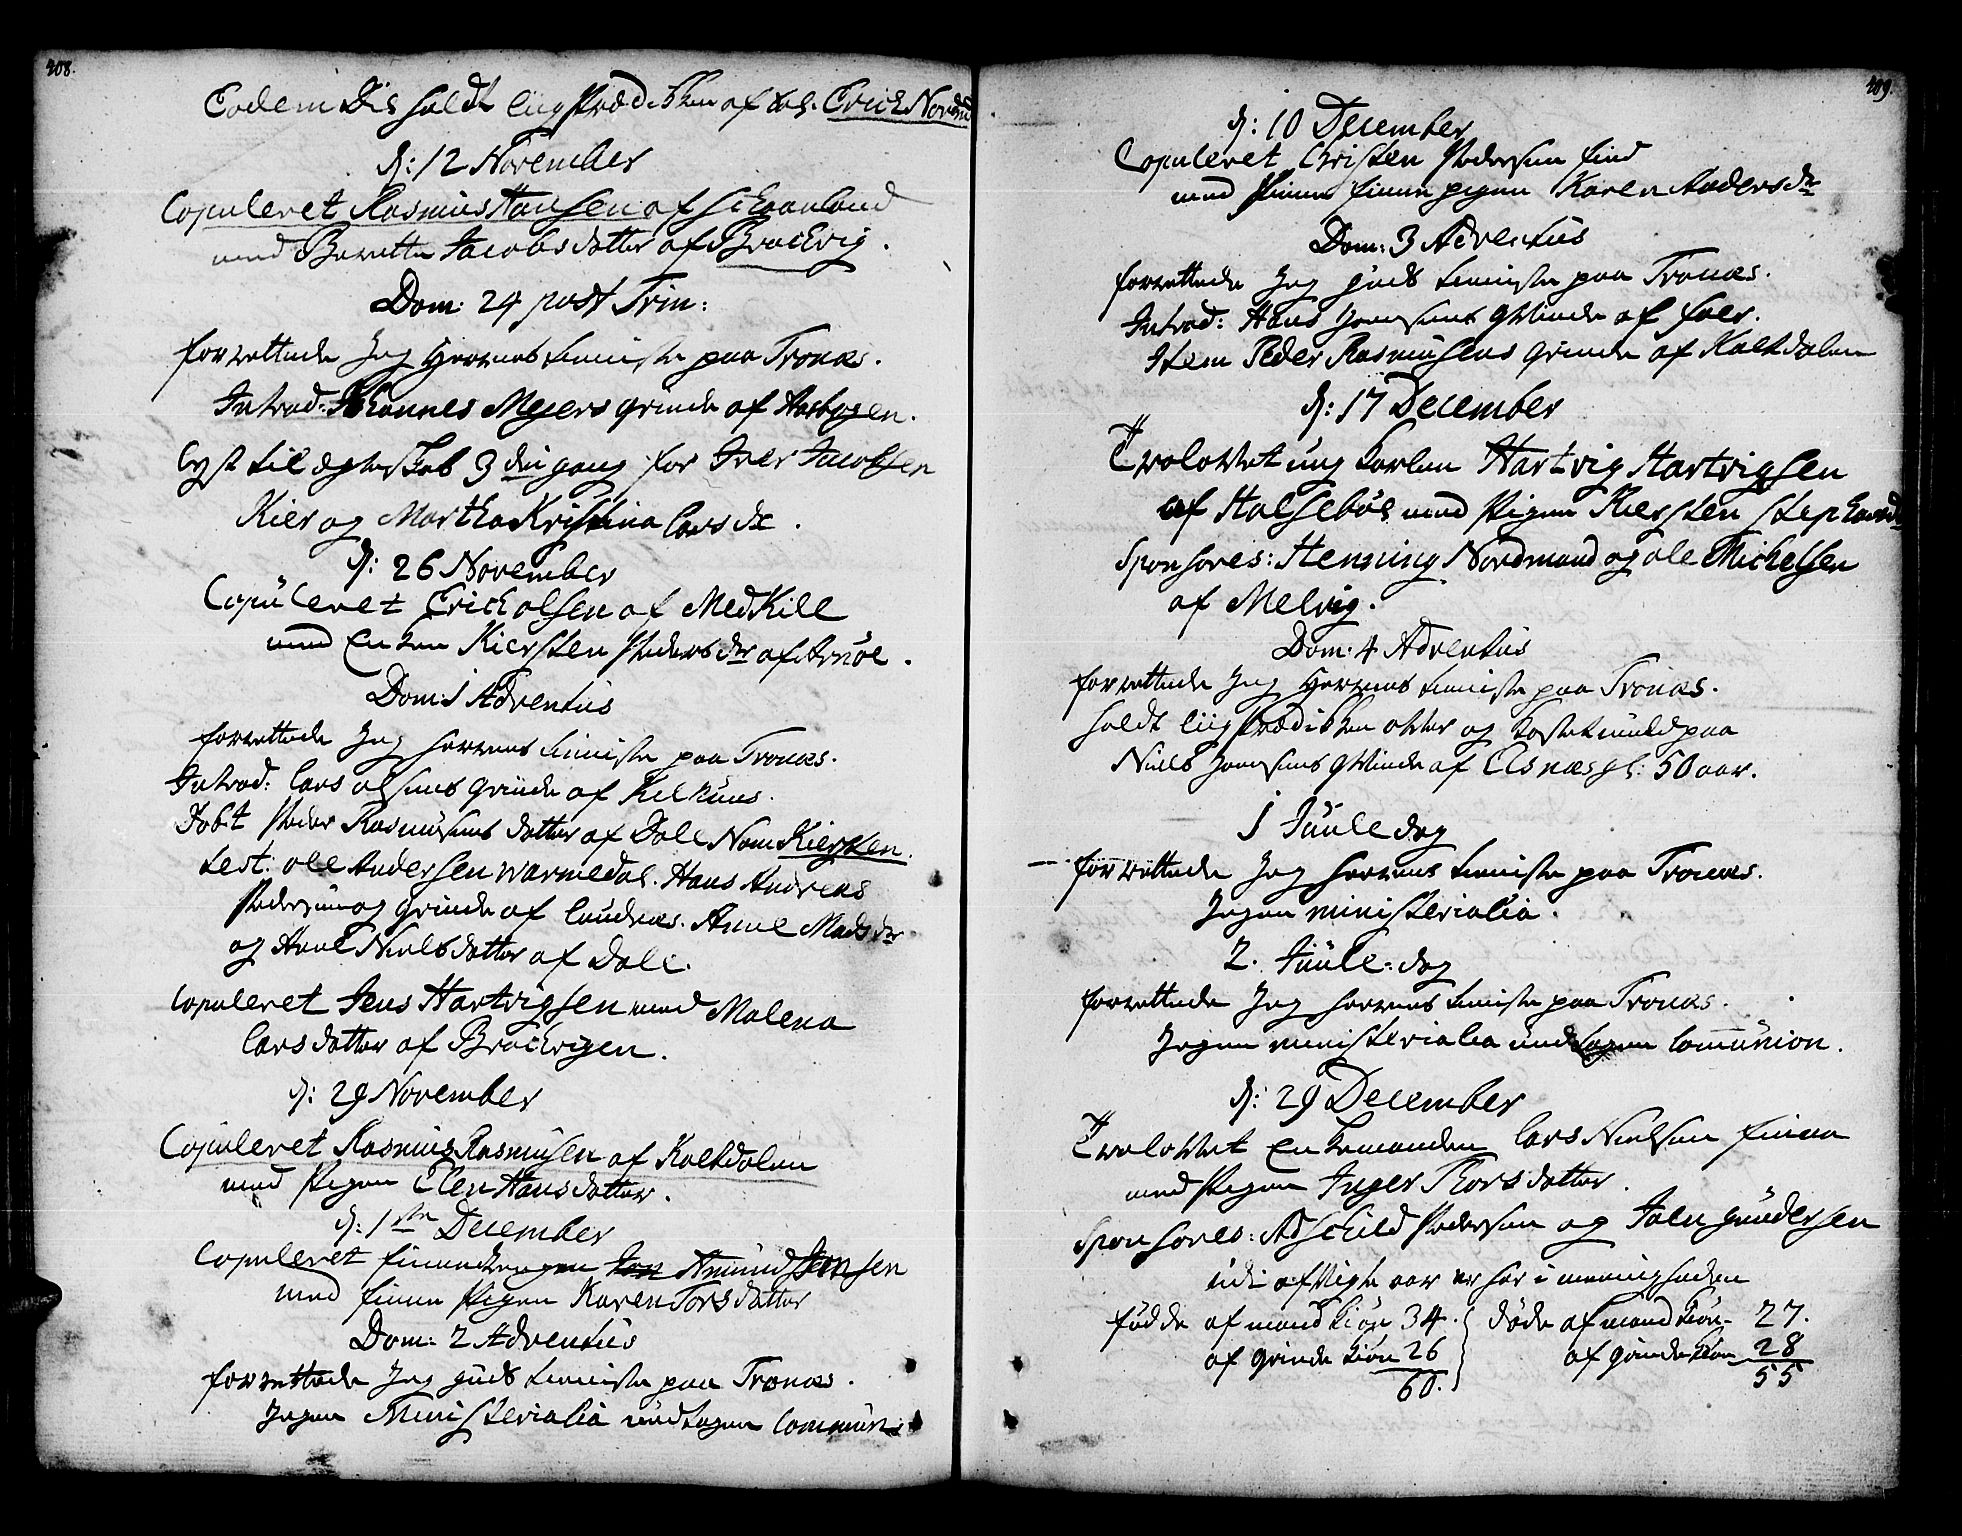 408.
Eodem Die holdt Liig Prædicken af sal. Erick Nordmd
d: 12 November
Copuleret Rasmus Hansen af Schaanland
med Berette Jacobsdatter af Brochvig.
Dom: 24 post Trin:
forrettede Jeg Herrens tienniste paa Tronæs.
Introd: Johannes Meyers qvinde af Aasbyen.
lyst til ægteskab 3die gang for Iver Jacobsen
Kier og Martha Kristina Larsdr.
d: 26 November
Copuleret Erich Olsen af MedKile
med Enken Kiersten Pedersdtr af Arnøe.
Dom: 1 Adventus
forrettede Jeg Herrens tienniste paa Tronæs.
Introd: Lars olsens qvinde af Kilhuus.
Døbt Peder Rasmusens datter af Dale Nom Kiersten.
test: ole Andersen Warmedal. Hans Andreas
Pedersen og qvinde af Laudnæs. Anne Madsdtr
og Ane Nielsdatter af Dale.
Copuleret Jens Hartvigsen med Malena
Larsdatter af Brochvigen.
d: 29 November
Copuleret Rasmus Rasmusen af Kaltdalen
med Pigen Elen Hansdatter.
d: 1ste December
Copuleret finnedrengen Jon Amund Jonsen
med finne Pigen Karen Torsdatter
Dom: 2 Adventus
forrettede Jeg Guds tienniste paa Tronæs.
Ingen Ministerialia undtagen Commun
409.
d: 10 December
Copuleret Christen Pedersen find
med Finne pigen Karen Andersdtr
Dom: 3 Adventus
forrettede Jeg Guds tienniste paa Tronæs.
Introd: Hans Jensens qvinde af foer.
Item Peder Rasmusens qvinde af Kaltdalen
d: 17 December
Trolovet ung Karlen Hartvig Hartvigsen
af Halsebøe med Pigen Kiersten stephensd
Sponsores: Henning Nordmand og ole Michelsen
af Melvig.
Dom: 4 Adventus
forrettede Jeg Herrens tienniste paa Tronæs.
holdt Liig Prædicken over og kastet muld paa
Niels Jensens qvinde af Elsnæs gl: 50 aar.
1 Juule dag
forrettede Jeg Herrens tienniste paa Tronæs.
Ingen ministerialia.
2. Juule-dag
forrettede Jeg Herrens tienniste paa Tronæs.
Ingen ministerialia undtagen Communion.
d: 29 December
Trolovet Enkemanden Lars Nielsen finne
med Pigen Inger Thorsdatter.
Sponsores: Aschild Pedersen og John Gundersen
udi afvigte aar er her i meenigheden
fødde af mand kiøn 34. døde af mand kiøn 27.
af qvinde kiøn 26 af qvinde kiøn 28
60. 55